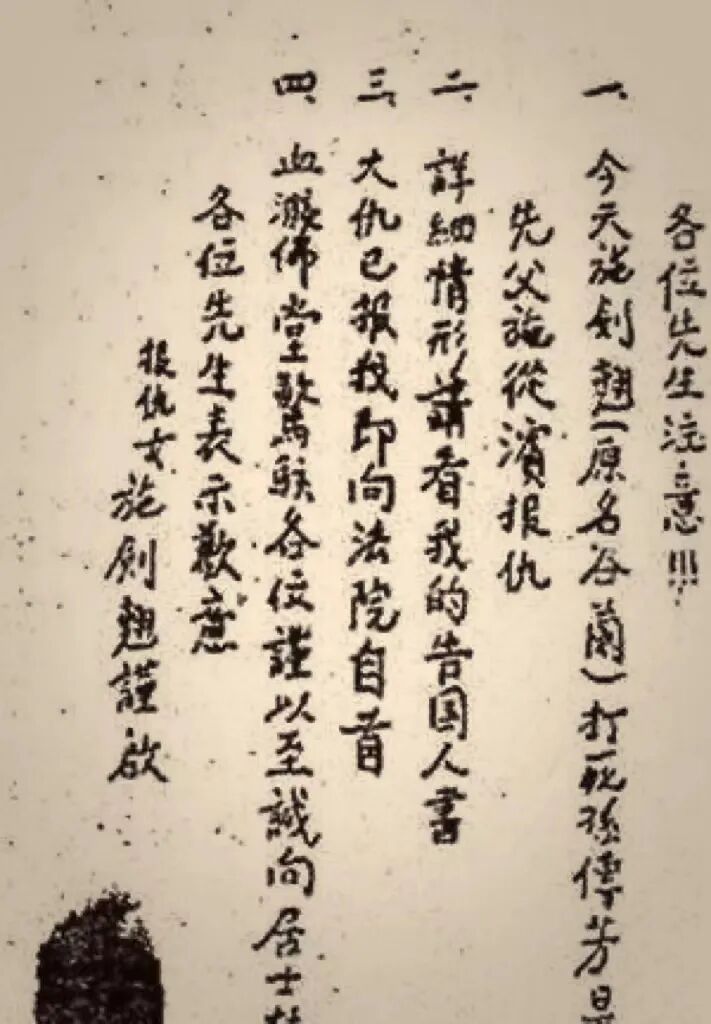 各位先生注意!!!
一、今天施剑翘(原名谷兰)打死孫傳芳是
先父施從濱报仇
二、詳細情形請看我的告国人書
三、大仇已报我即向法院自首
四、血濺佛堂驚駭各位謹以至誠向居士林
各位先生表示歉意
报仇女 施剑翘謹啟